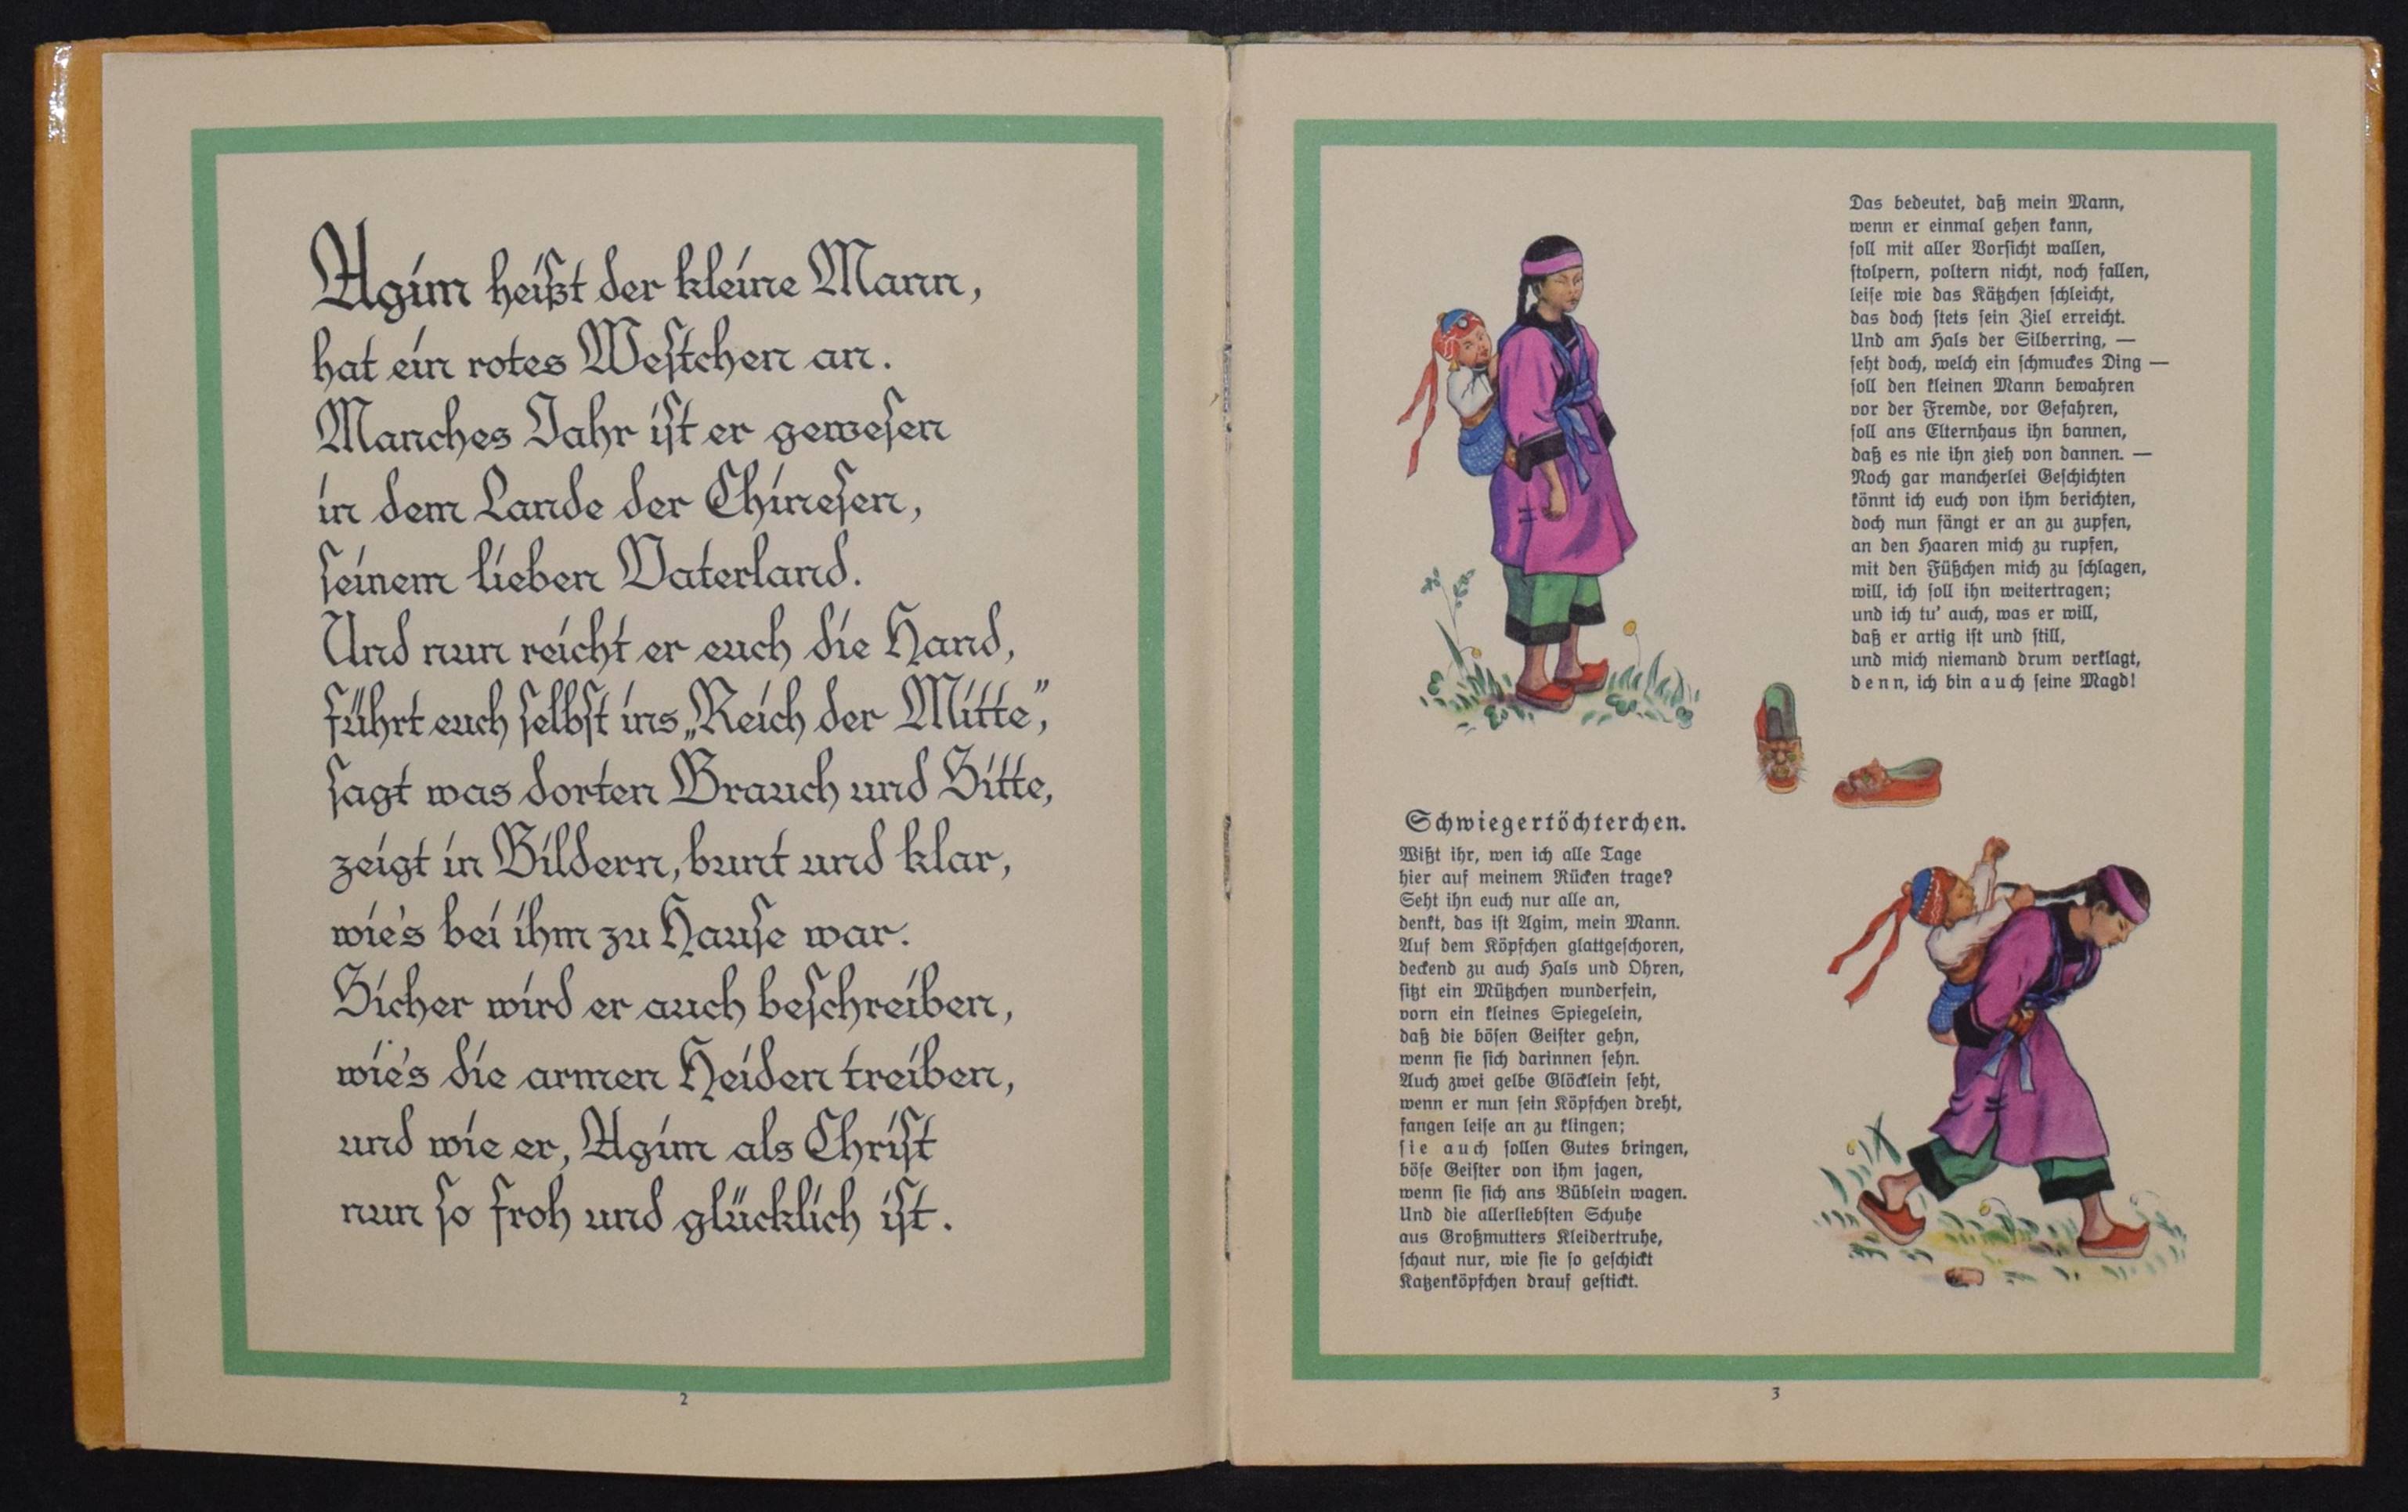 Agim heißt der kleine Mann,
hat ein rotes Westchen an.
Manches Jahr ist er gewesen
in dem Lande der Chinesen,
seinem lieben Vaterland.
Und nun reicht er euch die Hand,
führt euch selbst ins „Reich der Mitte”,
sagt was dorten Brauch und Sitte,
zeigt in Bildern, bunt und klar,
wie's bei ihm zu Hause war.
Sicher wird er auch beschreiben,
wie's die armen Heiden treiben,
und wie er, Agim als Christ
nun so froh und glücklich ist.
2
Schwiegertöchterchen.
Wißt ihr, wen ich alle Tage
hier auf meinem Rücken trage?
Seht ihn euch nur alle an,
denkt, das ist Agim, mein Mann.
Auf dem Köpfchen glattgeschoren,
deckend zu auch Hals und Ohren,
sitzt ein Mützchen wunderfein,
vorn ein kleines Spiegelein,
daß die bösen Geister gehn,
wenn sie sich darinnen sehn.
Auch zwei gelbe Glöcklein seht,
wenn er nun sein Köpfchen dreht,
fangen leise an zu klingen;
sie auch sollen Gutes bringen,
böse Geister von ihm jagen,
wenn sie sich ans Büblein wagen.
Und die allerliebsten Schuhe
aus Großmutters Kleidertruhe,
schaut nur, wie sie so geschickt
Katzenköpfchen drauf gestickt.
Das bedeutet, daß mein Mann,
wenn er einmal gehen kann,
soll mit aller Vorsicht wallen,
stolpern, poltern nicht, noch fallen,
leise wie das Kätzchen schleicht,
das doch stets sein Ziel erreicht.
Und am Hals der Silberring, —
seht doch, welch ein schmuckes Ding —
soll den kleinen Mann bewahren
vor der Fremde, vor Gefahren,
soll ans Elternhaus ihn bannen,
daß es nie ihn zieh von dannen. —
Noch gar mancherlei Geschichten
könnt ich euch von ihm berichten,
doch nun fängt er an zu zupfen,
an den Haaren mich zu rupfen,
mit den Füßchen mich zu schlagen,
will, ich soll ihn weitertragen;
und ich tu' auch, was er will,
daß er artig ist und still,
und mich niemand drum verklagt,
denn, ich bin auch seine Magd!
3